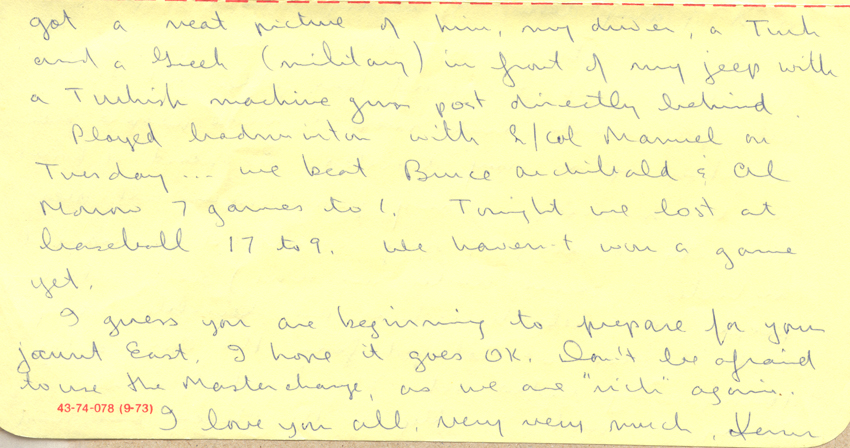 got a neat picture of him, my driver, a Turk
and a Greek (military) in front of my jeep with
a Turkish machine gun post directly behind.
Played badminton with L/Col Manuel on
Tuesday... we beat Bruce Archibald & Cal
Morrow 7 games to 1. Tonight we lost at
baseball 17 to 9. We haven't won a game
yet.
I guess you are beginning to prepare for your
jaunt East. I hope it goes OK. Don't be afraid
to use the Mastercharge, as we are "rich" again..
43-74-078 (9-73) I love you all, very very much,